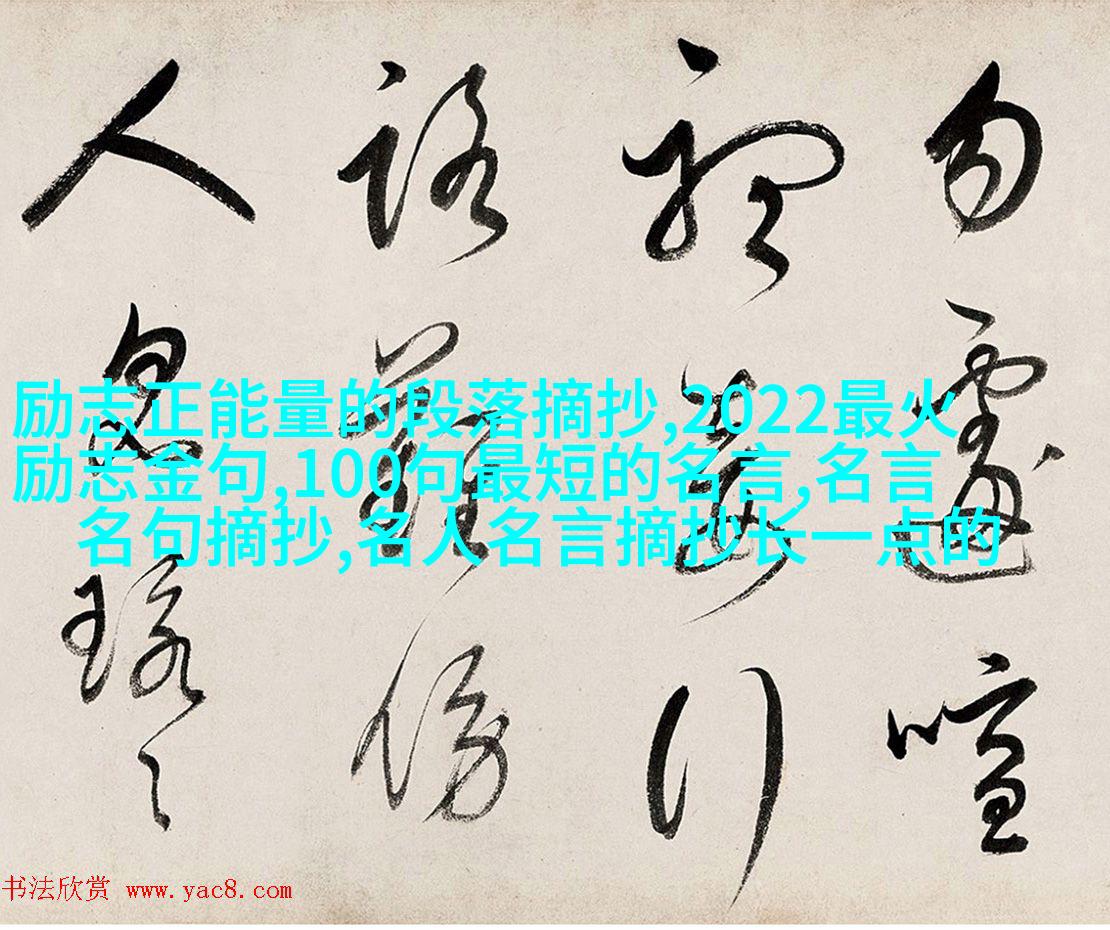 励志正能量的段落摘抄,2022最火
励志金句,100句最短的名言,名言
名句摘抄,名人名言摘抄长一点的
勿遽喧
行
路難傍
人
书法欣赏 www.yac8.com